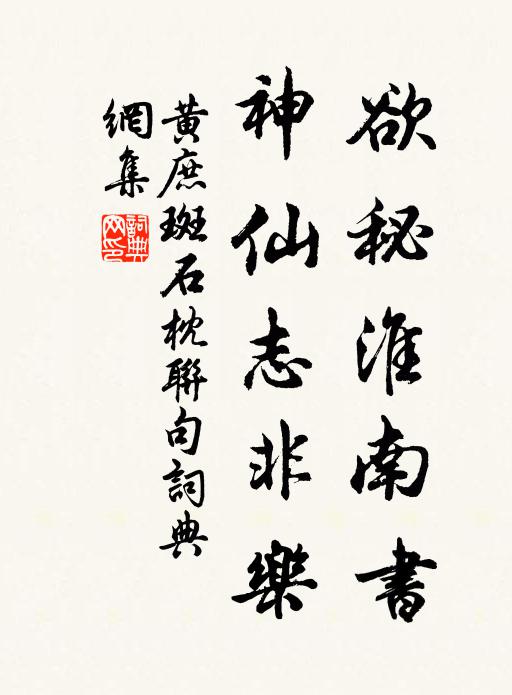 欲秘淮南書
神仙志非樂
黄庶斑石枕聯句詞典
網集
詞典
网印